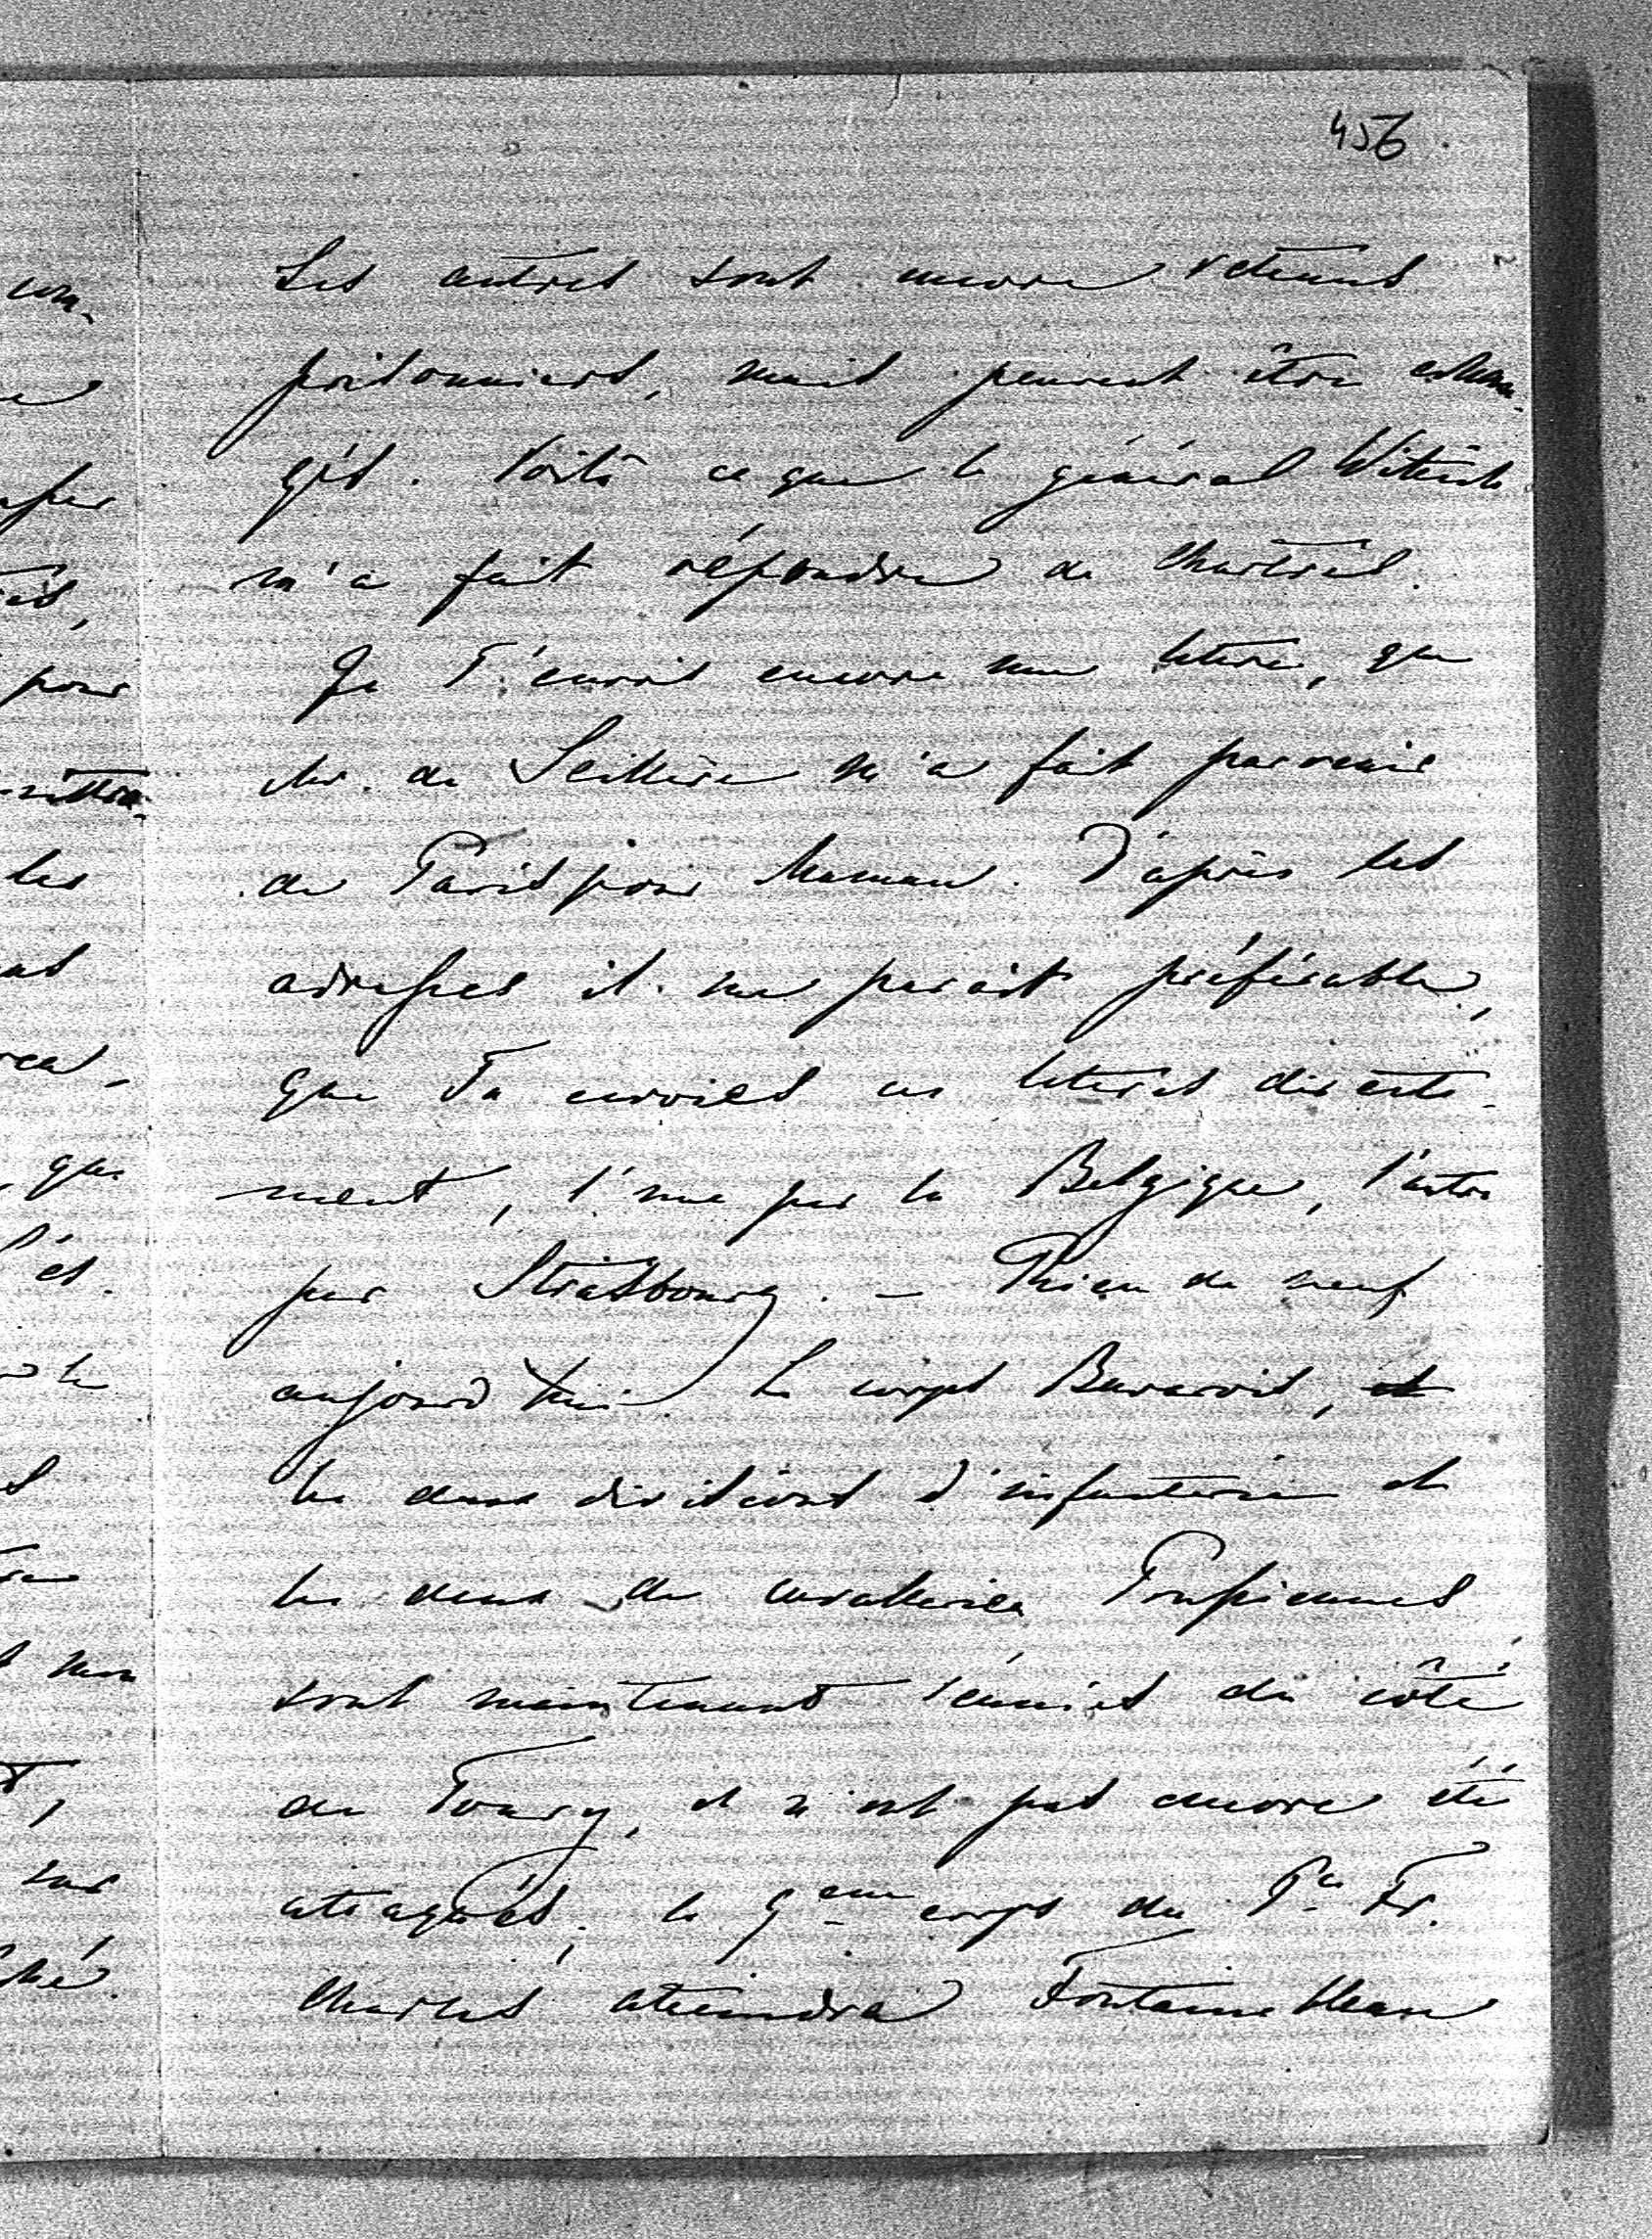 456
Les autres sont encore retenus
prisonniers, mais peuvent être échan-
gés. Voilà ce que le général Wittich
m'a fait répondre de Chartres.
Je T'envois encore une lettre, que
Mr. de Seillière m'a fait parvenir
de Paris pour Maman. D'après les
adresses il me parait préférable,
que Tu envoies ces lettres directe-
ment, l'une par la Belgique, l'autre
par Strasbourg. – Rien de neuf
aujourd'hui. Le corps Bavarois, et
les deux divisions d'infanterie et
les deux de cavallerie Prussiennes
sont maintenant réunies du côté
de Toury, et n'ont pas encore été
attaqués; le 9eme corps du Pce Fr.
Charles atteindra Fontainebleau